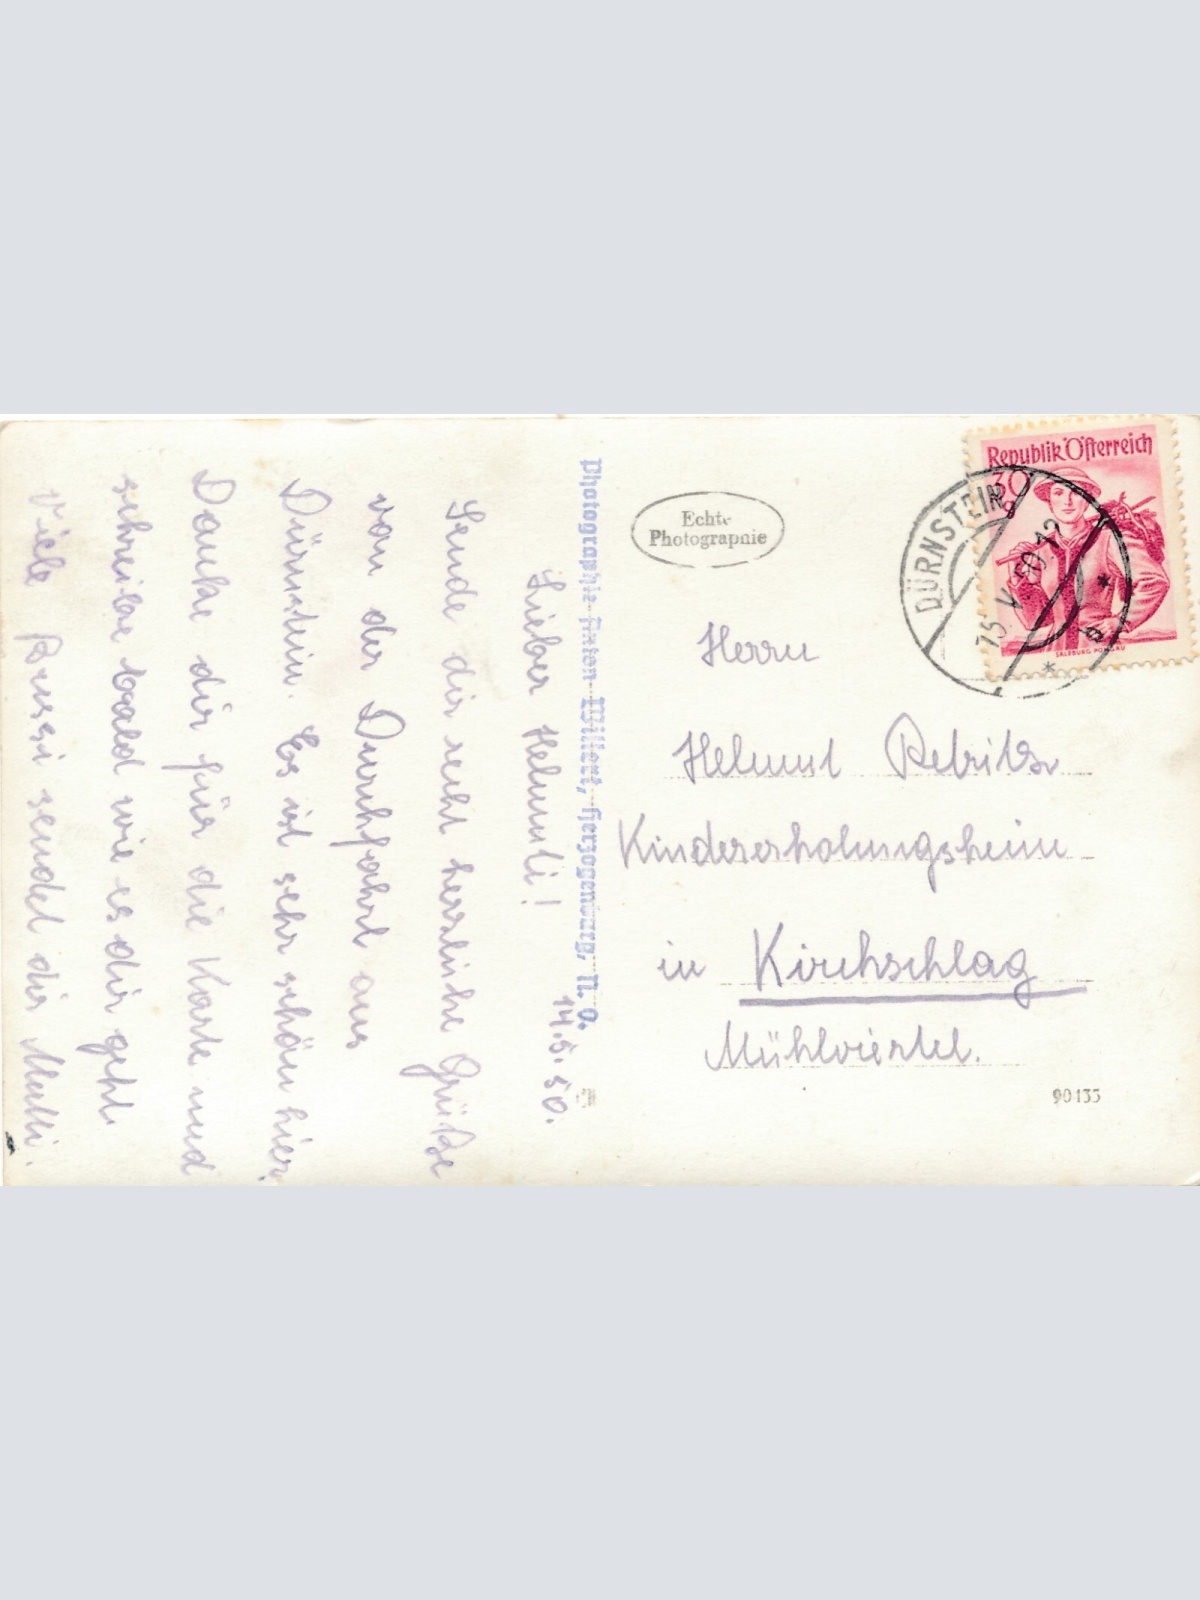 14.5.50.
Lieber Helmuti!
Sende dir recht herzliche Grüße
von der Durchfahrt aus
Dürnstein. Es ist sehr schön hier.
Danke dir für die Karte und
schreibe bald wie es dir geht.
Viele Bussi sendet dir Mutti.
Photographie Anton Willert, Herzogenburg, N. Ö.
Echte
Photographie
Republik Österreich
30
SALZBURG PONGAU
DÜRNSTEIN
15. V. 50. 12
* a *
Herrn
Helmut
Kindererholungsheim
in Kirchschlag
Mühlviertel.
90133